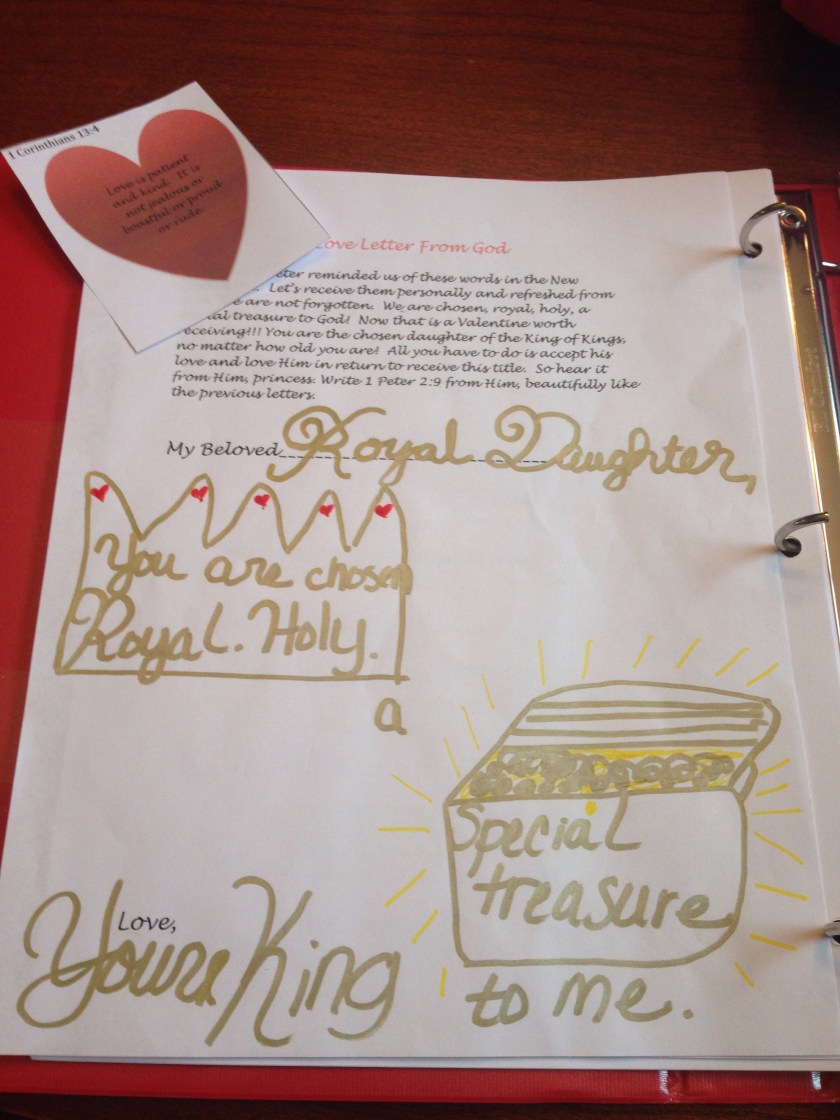 1 Corinthians 13:4
Love is patient
and kind. It is
not jealous or
boastful or proud
or rude.
Love Letter From God
eter reminded us of these words in the New
. Let's receive them personally and refreshed from
e are not forgotten. We are chosen, royal, holy, a
al treasure to God! Now that is a Valentine worth
eceiving!!! You are the chosen daughter of the King of Kings,
no matter how old you are! All you have to do is accept his
love and love Him in return to receive this title. So hear it
from Him, princess. Write 1 Peter 2:9 from Him, beautifully like
the previous letters.
My Beloved Royal Daughter,
You are chosen
Royal. Holy.
a
Special
treasure
to me.
Love,
Youre King